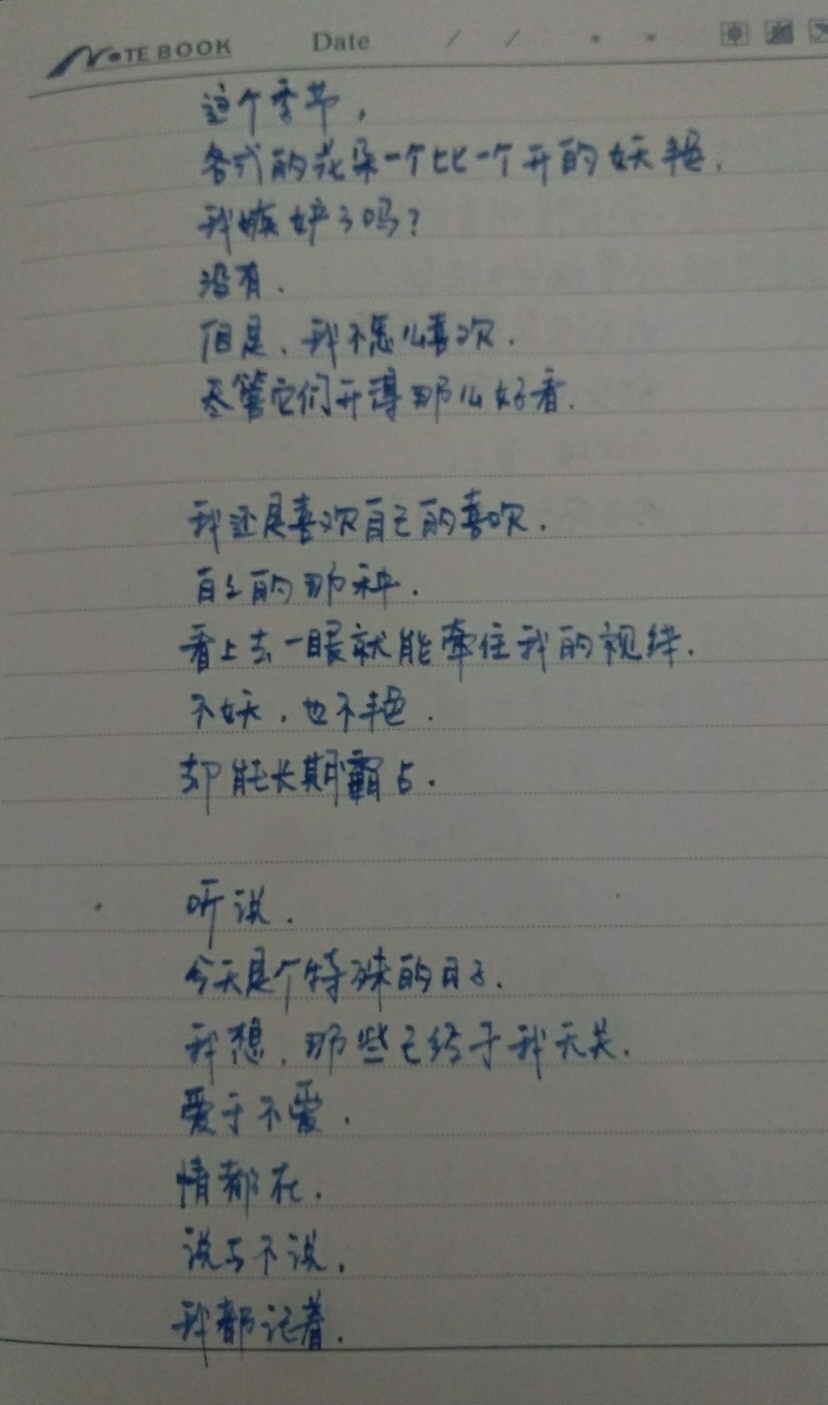 NOTEBOOK Date / / . .
这个季节，
各式的花朵一个比一个开的妖艳．
我嫉妒了吗？
没有．
但是．我不怎么喜欢．
尽管它们开得那么好看．
我还是喜欢自己的喜欢．
自己的那种．
看上去一眼就能牵住我的视线．
不妖，也不艳．
却能长期霸占．
听说．
今天是个特殊的日子．
我想，那些已经于我无关．
爱于不爱．
情都在．
说与不说．
我都记着．